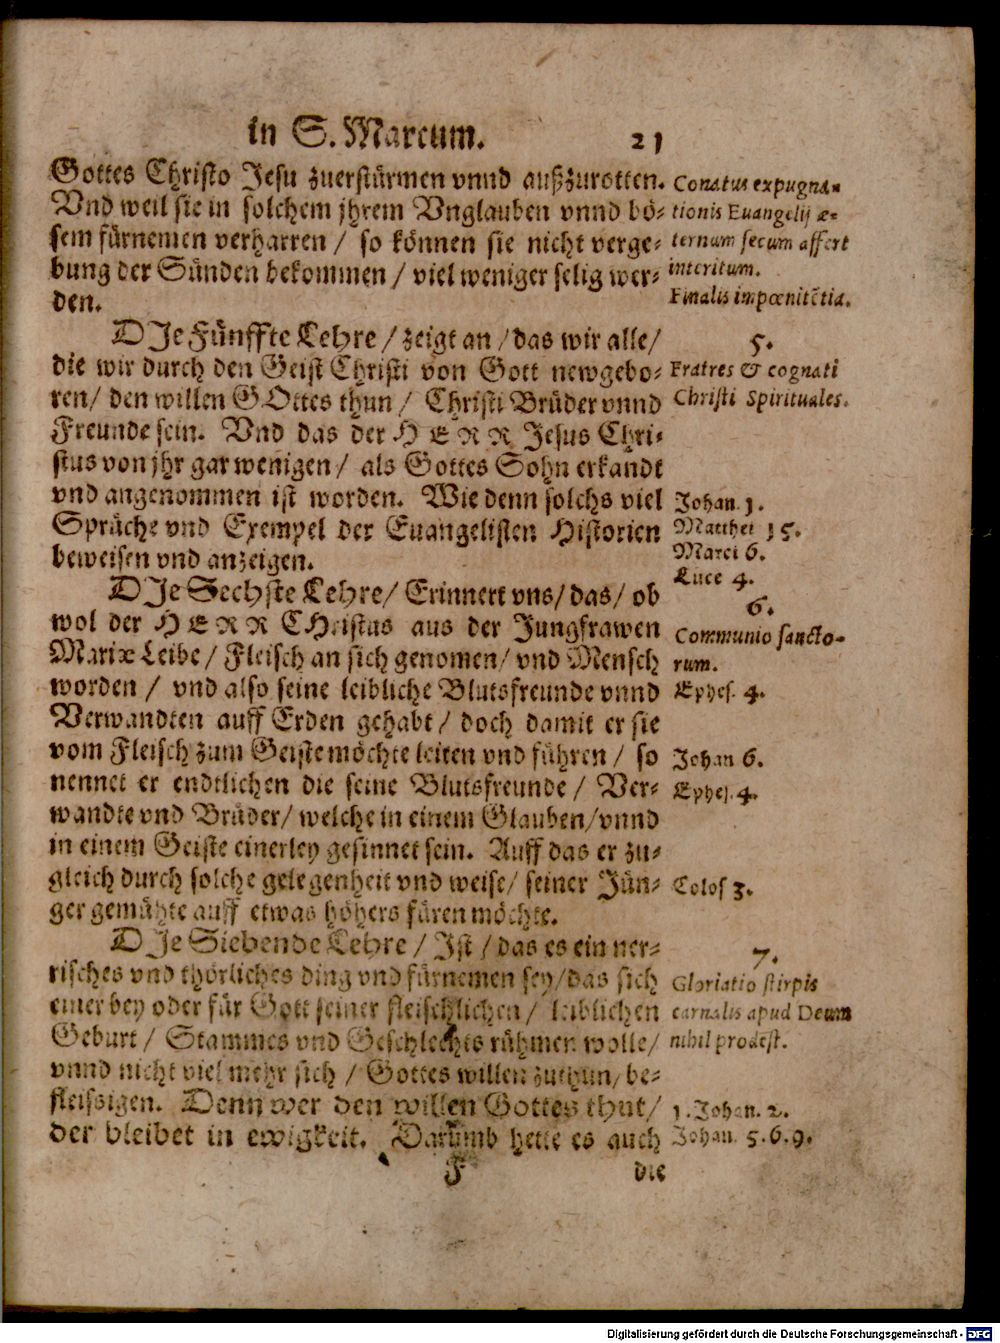 in S. Marcum. 21
Gottes Christo Jesu zuerstürmen vnnd außzurotten.
Vnd weil sie in solchem jhrem Vnglauben vnnd bö-
sem fürnemen verharren / so können sie nicht verge-
bung der Sünden bekommen / viel weniger selig wer-
den.
Conatus expugna-
tionis Euangelij æ-
ternum secum affert
interitum.
Finalis impœnitẽtia.
DJe Fünffte Lehre / zeigt an / das wir alle /
die wir durch den Geist Christi von Gott newgebo-
ren / den willen GOttes thun / Christi Brüder vnnd
Freunde sein. Vnd das der HERR Jesus Chri-
stus von jhr gar wenigen / als Gottes Sohn erkandt
vnd angenommen ist worden. Wie denn solchs viel
Sprüche vnd Exempel der Euangelisten Historien
beweisen vnd anzeigen.
5.
Fratres & cognati
Christi Spirituales.
Johan. 1.
Matthei 15.
Marci 6.
Luce 4.
DJe Sechste Lehre / Erinnert vns / das / ob
wol der HERR CHristus aus der Jungfrawen
Mariæ Leibe / Fleisch an sich genomen / vnd Mensch
worden / vnd also seine leibliche Blutsfreunde vnnd
Verwandten auff Erden gehabt / doch damit er sie
vom Fleisch zum Geiste möchte leiten vnd führen / so
nennet er endtlichen die seine Blutsfreunde / Ver-
wandte vnd Brüder / welche in einem Glauben / vnnd
in einem Geiste einerley gesinnet sein. Auff das er zu-
gleich durch solche gelegenheit vnd weise / seiner Jün-
ger gemühte auff etwas höhers füren möchte.
6.
Communio sancto-
rum.
Ephes. 4.
Johan 6.
Ephes. 4.
Colos 3.
DJe Siebende Lehre / Jst / das es ein ner-
risches vnd thörliches ding vnd fürnemen sey / das sich
einer bey oder für Gott seiner fleischlichen / leiblichen
Geburt / Stammes vnd Geschlechts rühmen wolle /
vnnd nicht viel mehr sich / Gottes willen zuthun / be-
fleissigen. Denn wer den willen Gottes thut /
der bleibet in ewigkeit. Darumb hette es auch
7.
Gloriatio stirpis
carnalis apud Deum
nihil prodest.
1. Johan. 2.
Johan. 5. 6. 9.
F die
Digitalisierung gefördert durch die Deutsche Forschungsgemeinschaft - DFG